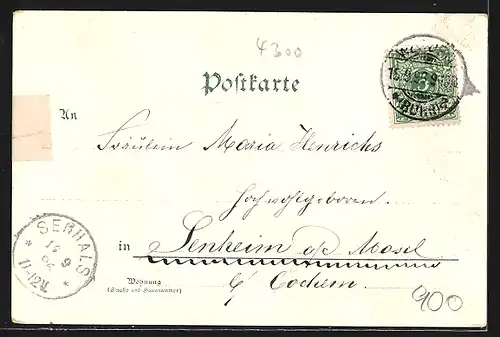 4300
Postkarte
An
Fräulein Maria Henrichs
Hochwohlgeboren.
in Senheim a/d Mosel
Wohnung
(Straße und Hausnummer)
b/ Cochem.
900
SEBHALS
15 9
11-12V
5